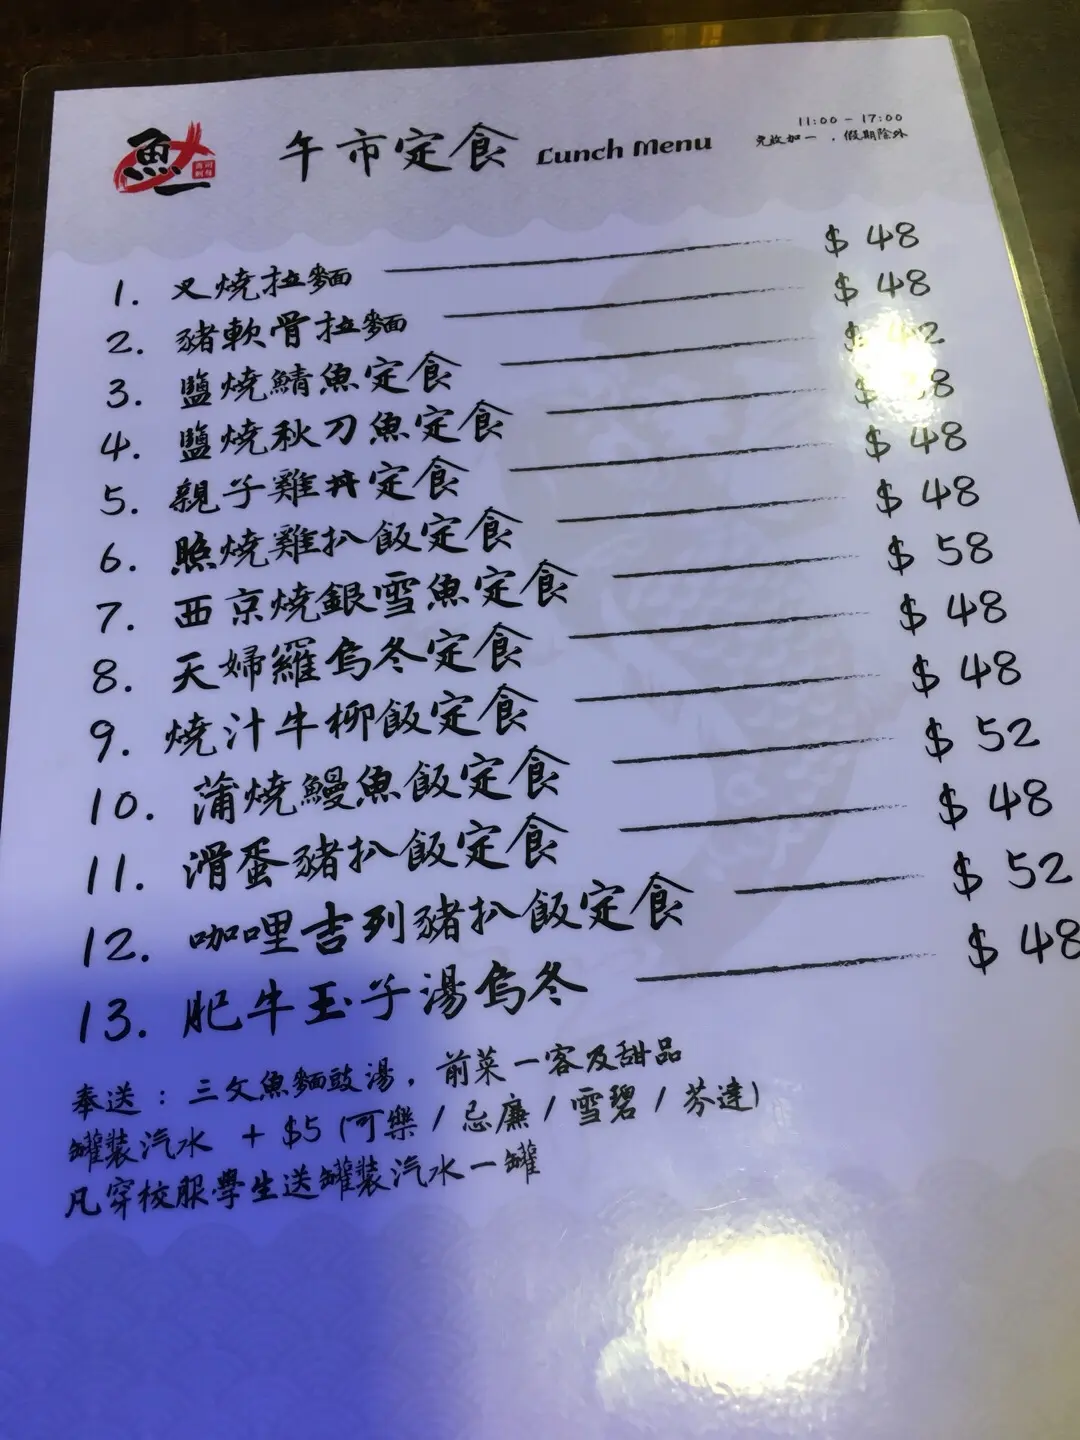 魚一
午市定食 Lunch Menu
11:00 - 17:00
免收加一，假期除外
1. 叉燒拉麵 $ 48
2. 豬軟骨拉麵 $ 48
3. 鹽燒鯖魚定食 $ 2
4. 鹽燒秋刀魚定食 $ 8
5. 親子雞丼定食 $ 48
6. 照燒雞扒飯定食 $ 48
7. 西京燒銀雪魚定食 $ 58
8. 天婦羅烏冬定食 $ 48
9. 燒汁牛柳飯定食 $ 48
10. 蒲燒鰻魚飯定食 $ 52
11. 滑蛋豬扒飯定食 $ 48
12. 咖哩吉列豬扒飯定食 $ 52
13. 肥牛玉子湯烏冬 $ 48
奉送 : 三文魚麵豉湯，前菜一客及甜品
罐裝汽水 + $5 (可樂 / 忌廉 / 雪碧 / 芬達)
凡穿校服學生送罐裝汽水一罐